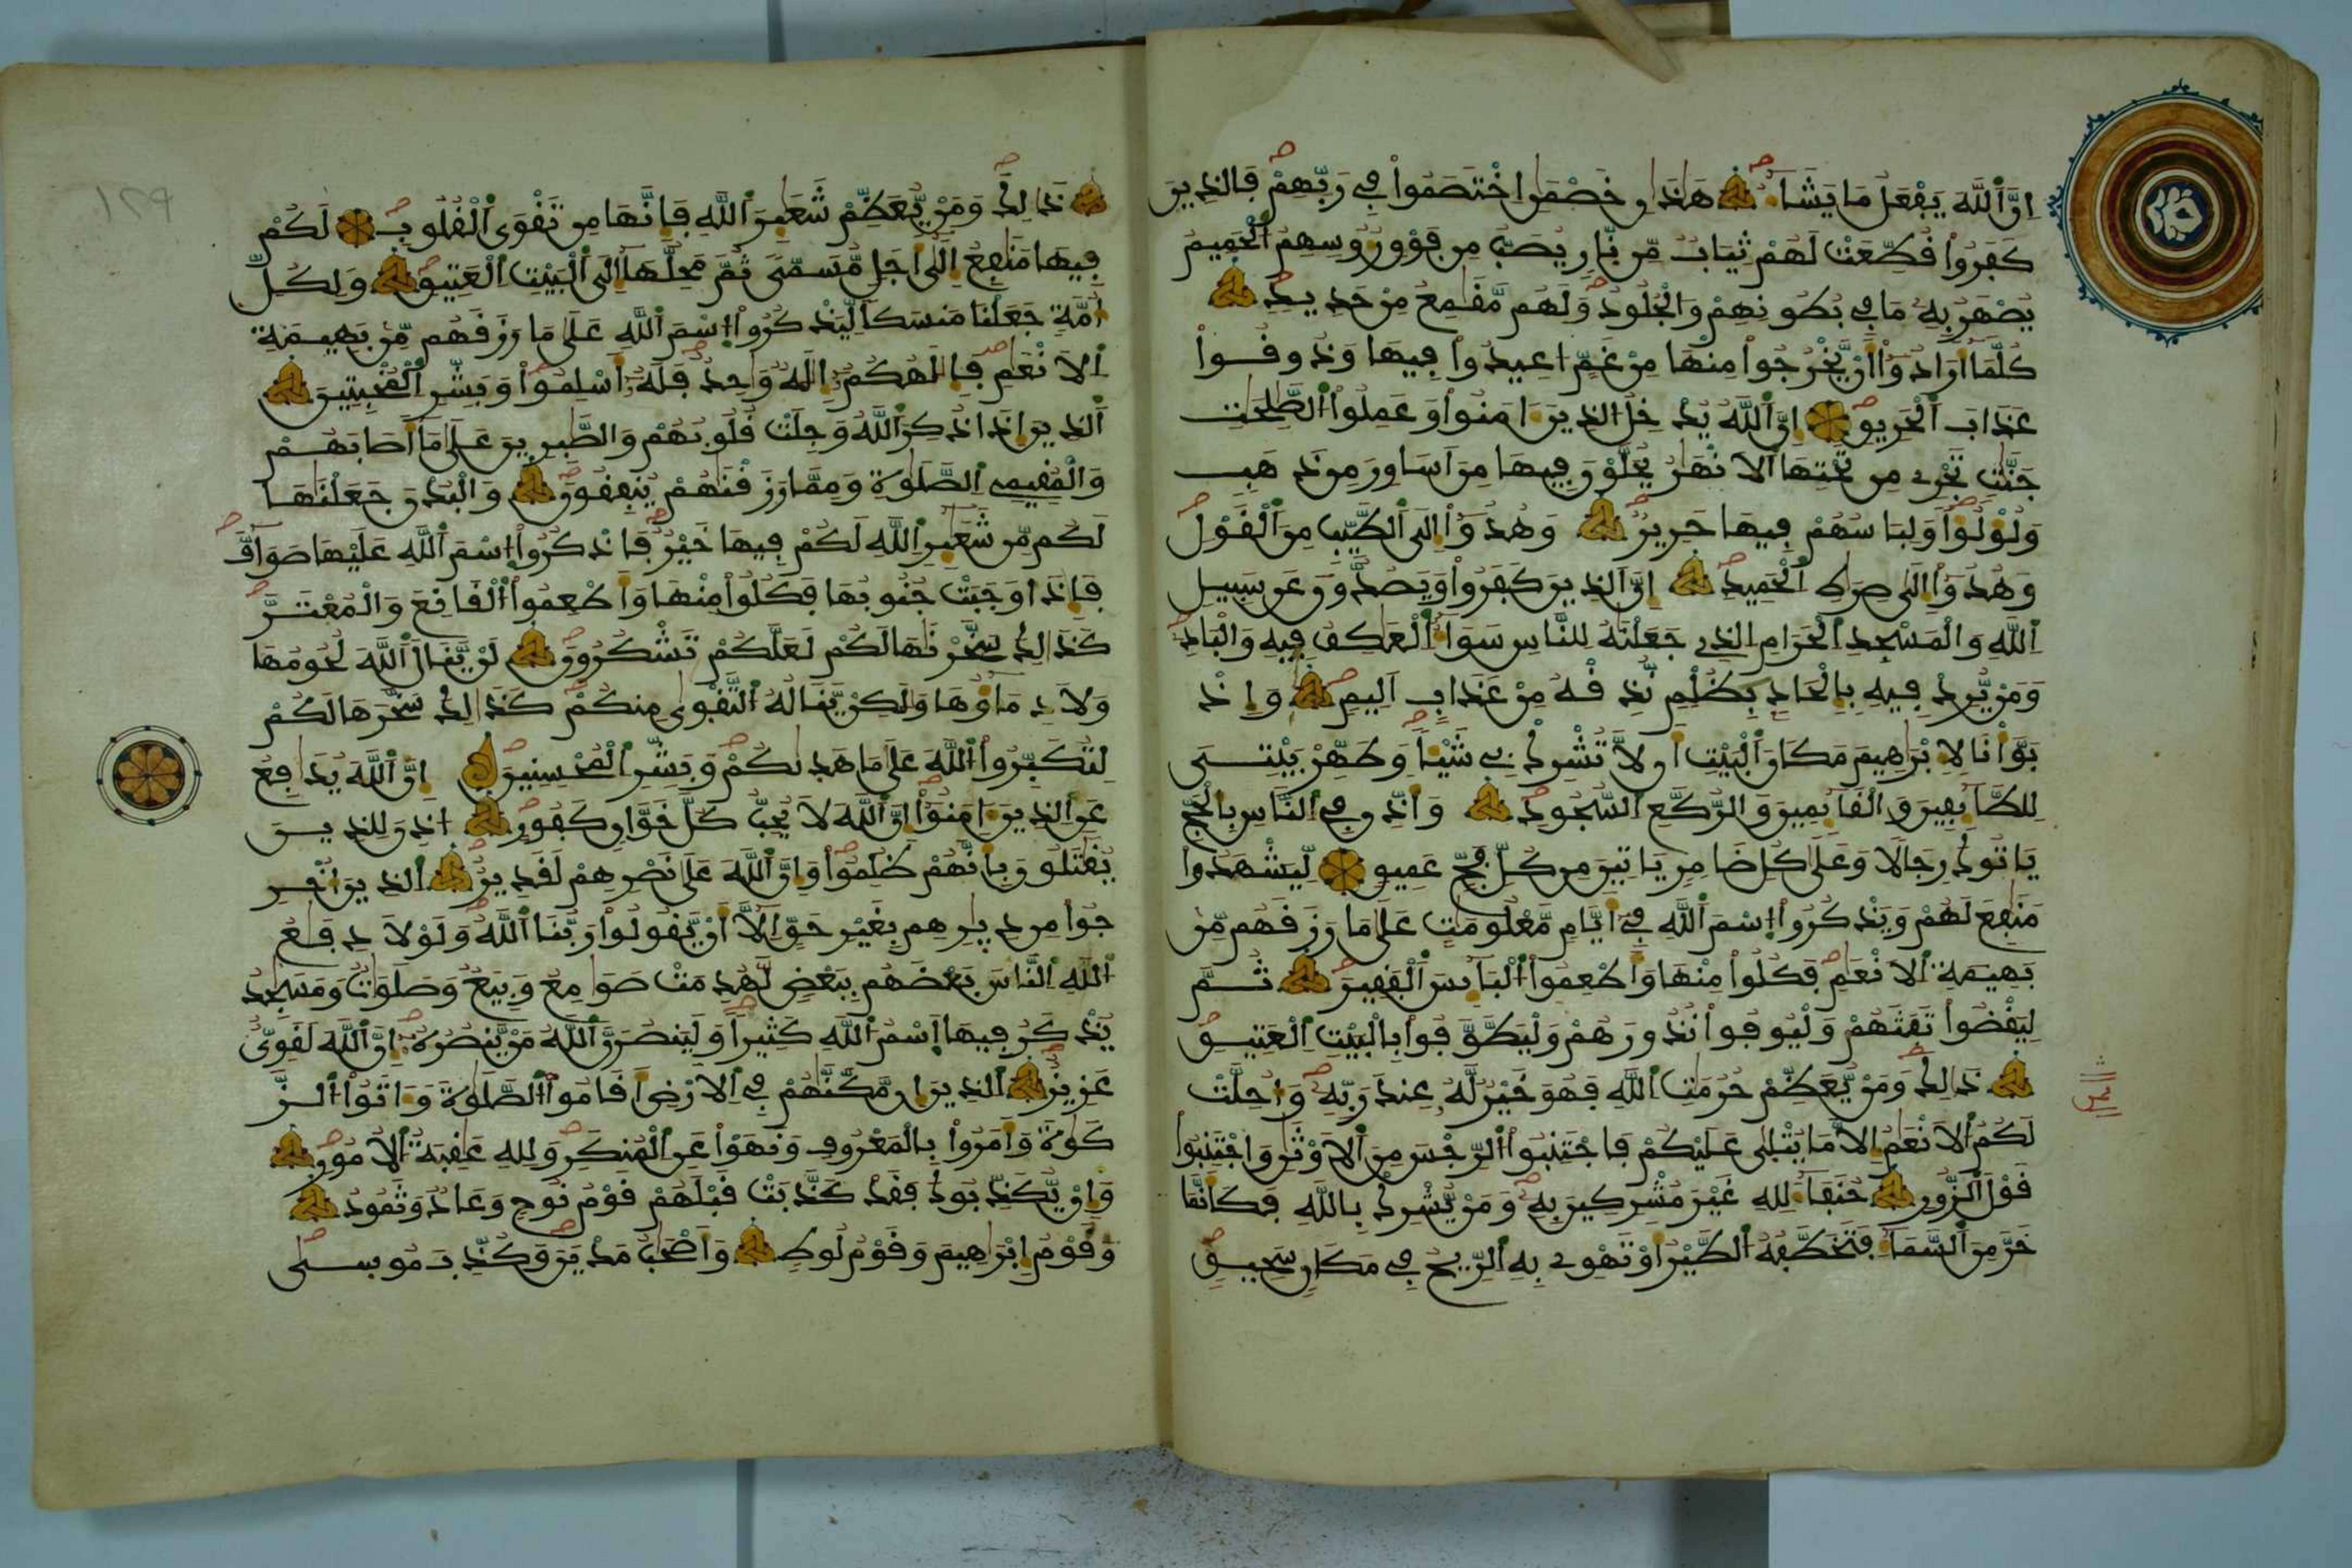 اِنَّ اَ۬للَّهَ يَفْعَلُ مَا يَشَآءُ هَٰذَٰنِ خَصْمَٰنِ اِ۪خْتَصَمُواْ فِے رَبِّهِمْ فَالذِينَ
كَفَرُواْ قُطِّعَتْ لَهُمْ ثِيَابٌ مِّن نّ۪ارٍ يُصَبُّ مِن فَوْقِ رُءُوسِهِمُ اُ۬لْحَمِيمُ
يُصْهَرُ بِهِۦ مَا فِے بُطُونِهِمْ وَالْجُلُودُ وَلَهُم مَّقَٰمِعُ مِنْ حَدِيدٖ
كُلَّمَآ أَرَادُوٓاْ أَنْ يَّخْرُجُواْ مِنْهَا مِنْ غَمٍّ ا۟عِيدُواْ فِيهَا وَذُوقُواْ
عَذَابَ اَ۬لْحَرِيقِ إِنَّ اَ۬للَّهَ يُدْخِلُ اُ۬لذِينَ ءَامَنُواْ وَعَمِلُواْ اُ۬لصَّٰلِحَٰتِ
جَنَّٰتٍ تَجْرِے مِن تَحْتِهَا اَ۬لَانْهَٰرُ يُحَلَّوْنَ فِيهَا مِنَ اَسَاوِرَ مِن ذَهَبٍ
وَلُؤْلُؤاً وَلِبَاسُهُمْ فِيهَا حَرِيرٌ وَهُدُوٓاْ إِلَى اَ۬لطَّيِّبِ مِنَ اَ۬لْقَوْلِ
وَهُدُوٓاْ إِلَىٰ صِرَٰطِ اِ۬لْحَمِيدِ إِنَّ اَ۬لذِينَ كَفَرُواْ وَيَصُدُّونَ عَن سَبِيلِ
اِ۬للَّهِ وَالْمَسْجِدِ اِ۬لْحَرَامِ اِ۬لذِے جَعَلْنَٰهُ لِلنَّاسِ سَوَآءٌ اِ۬لْعَٰكِفُ فِيهِ وَالْبَادِ
وَمَنْ يُّرِدْ فِيهِ بِإِلْحَادِۢ بِظُلْمٖ نُّذِقْهُ مِنْ عَذَابٍ اَلِيمٖ وَإِذْ
بَوَّأْنَا لِإِبْرَٰهِيمَ مَكَانَ اَ۬لْبَيْتِ أَن لَّا تُشْرِكْ بِے شَيْـٔاً وَطَهِّرْ بَيْتِىَ
لِلطَّآئِفِينَ وَالْقَآئِمِينَ وَالرُّكَّعِ اِ۬لسُّجُودِ وَأَذِّن فِے اِ۬لنَّاسِ بِالْحَجِّ
يَاتُوكَ رِجَالًا وَعَلَىٰ كُلِّ ضَامِرٍ يَاتِينَ مِن كُلِّ فَجٍّ عَمِيقٖ لِّيَشْهَدُواْ
مَنَٰفِعَ لَهُمْ وَيَذْكُرُواْ اُ۪سْمَ اَ۬للَّهِ فِےٓ أَيَّامٍ مَّعْلُومَٰتٍ عَلَىٰ مَا رَزَقَهُم مِّنۢ
بَهِيمَةِ اِ۬لَانْعَٰمِ فَكُلُواْ مِنْهَا وَأَطْعِمُواْ اُ۬لْبَآئِسَ اَ۬لْفَقِيرَ ثُمَّ
لِيَقْضُواْ تَفَثَهُمْ وَلْيُوفُواْ نُذُورَهُمْ وَلْيَطَّوَّفُواْ بِالْبَيْتِ اِ۬لْعَتِيقِ
ذَٰلِكَ وَمَنْ يُّعَظِّمْ حُرُمَٰتِ اِ۬للَّهِ فَهُوَ خَيْرٌ لَّهُۥ عِندَ رَبِّهِۦ وَأُحِلَّتْ
لَكُمُ اُ۬لَانْعَٰمُ إِلَّا مَا يُتْلَىٰ عَلَيْكُمْ فَاجْتَنِبُواْ اُ۬لرِّجْسَ مِنَ اَ۬لَاوْثَٰنِ وَاجْتَنِبُواْ
قَوْلَ اَ۬لزُّورِ حُنَفَآءَ لِلهِ غَيْرَ مُشْرِكِينَ بِهِۦ وَمَنْ يُّشْرِكْ بِاللَّهِ فَكَأَنَّمَا
خَرَّ مِنَ اَ۬لسَّمَآءِ فَتَخَطَّفُهُ اُ۬لطَّيْرُ أَوْ تَهْوِے بِهِ اِ۬لرِّيحُ فِے مَكَانٖ سَحِيقٖ
ذَٰلِكَ وَمَنْ يُّعَظِّمْ شَعَٰٓئِرَ اَ۬للَّهِ فَإِنَّهَا مِن تَقْوَى اَ۬لْقُلُوبِ لَكُمْ
فِيهَا مَنَٰفِعُ إِلَىٰٓ أَجَلٖ مُّسَمّىٗ ثُمَّ مَحِلُّهَآ إِلَى اَ۬لْبَيْتِ اِ۬لْعَتِيقِ وَلِكُلِّ
أُمَّةٖ جَعَلْنَا مَنسَكاً لِّيَذْكُرُواْ اُ۪سْمَ اَ۬للَّهِ عَلَىٰ مَا رَزَقَهُم مِّنۢ بَهِيمَةِ
اِ۬لَانْعَٰمِ فَإِلَٰهُكُمُۥٓ إِلَٰهٌ وَٰحِدٌ فَلَهُۥٓ أَسْلِمُواْ وَبَشِّرِ اِ۬لْمُخْبِتِينَ
اَ۬لذِينَ إِذَا ذُكِرَ اَ۬للَّهُ وَجِلَتْ قُلُوبُهُمْ وَالصَّٰبِرِينَ عَلَىٰ مَآ أَصَابَهُمْ
وَالْمُقِيمِے اِ۬لصَّلَوٰةِ وَمِمَّا رَزَقْنَٰهُمْ يُنفِقُونَ وَالْبُدْنَ جَعَلْنَٰهَا
لَكُم مِّن شَعَٰٓئِرِ اِ۬للَّهِ لَكُمْ فِيهَا خَيْرٌ فَاذْكُرُواْ اُ۪سْمَ اَ۬للَّهِ عَلَيْهَا صَوَآفَّ
فَإِذَا وَجَبَتْ جُنُوبُهَا فَكُلُواْ مِنْهَا وَأَطْعِمُواْ اُ۬لْقَانِعَ وَالْمُعْتَرَّ
كَذَٰلِكَ سَخَّرْنَٰهَا لَكُمْ لَعَلَّكُمْ تَشْكُرُونَ لَنْ يَّنَالَ اَ۬للَّهَ لُحُومُهَا
وَلَا دِمَآؤُهَا وَلَٰكِنْ يَّنَالُهُ اُ۬لتَّقْوَىٰ مِنكُمْ كَذَٰلِكَ سَخَّرَهَا لَكُمْ
لِتُكَبِّرُواْ اُ۬للَّهَ عَلَىٰ مَا هَدَىٰكُمْ وَبَشِّرِ اِ۬لْمُحْسِنِينَ إِنَّ اَ۬للَّهَ يُدَٰفِعُ
عَنِ اِ۬لذِينَ ءَامَنُوٓاْ إِنَّ اَ۬للَّهَ لَا يُحِبُّ كُلَّ خَوَّانٖ كَفُورٍ ا۟ذِنَ لِلذِينَ
يُقَٰتَلُونَ بِأَنَّهُمْ ظُلِمُواْ وَإِنَّ اَ۬للَّهَ عَلَىٰ نَصْرِهِمْ لَقَدِيرٌ اِ۬لذِينَ أُخْرِ
جُواْ مِن دِيٰ۪رِهِم بِغَيْرِ حَقٍّ اِلَّآ أَنْ يَّقُولُواْ رَبُّنَا اَ۬للَّهُ وَلَوْلَا دِفَٰعُ
اُ۬للَّهِ اِ۬لنَّاسَ بَعْضَهُم بِبَعْضٖ لَّهُدِمَتْ صَوَٰمِعُ وَبِيَعٌ وَصَلَوَٰتٌ وَمَسَٰجِدُ
يُذْكَرُ فِيهَا اَ۪سْمُ اُ۬للَّهِ كَثِيراً وَلَيَنصُرَنَّ اَ۬للَّهُ مَنْ يَّنصُرُهُۥٓ إِنَّ اَ۬للَّهَ لَقَوِيٌّ
عَزِيزٌ اِ۬لذِينَ إِن مَّكَّنَّٰهُمْ فِے اِ۬لَارْضِ أَقَامُواْ اُ۬لصَّلَوٰةَ وَءَاتَوُاْ اُ۬لزَّ
كَوٰةَ وَأَمَرُواْ بِالْمَعْرُوفِ وَنَهَوْاْ عَنِ اِ۬لْمُنكَرِ وَلِلهِ عَٰقِبَةُ اُ۬لُامُورِ
وَإِنْ يُّكَذِّبُوكَ فَقَدْ كَذَّبَتْ قَبْلَهُمْ قَوْمُ نُوحٖ وَعَادٌ وَثَمُودُ
وَقَوْمُ إِبْرَٰهِيمَ وَقَوْمُ لُوطٖ وَأَصْحَٰبُ مَدْيَنَ وَكُذِّبَ مُوسَىٰ